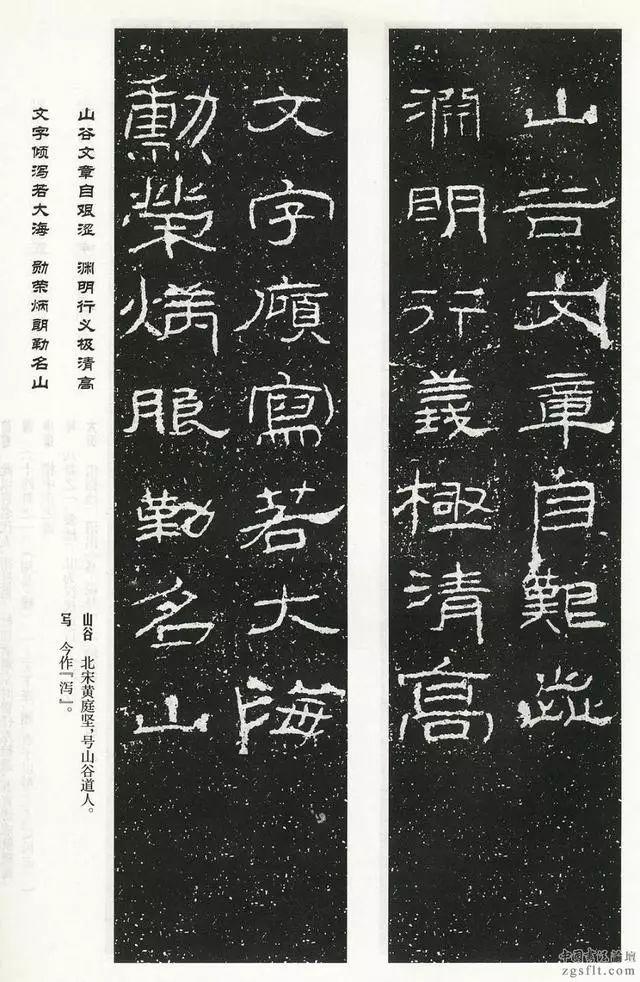 山谷文章自艱歰
淵明行義極清高
文字傾寫若大海
勳榮炳朗勒名山
山谷文章自艰涩 渊明行义极清高
文字倾泻若大海 勋荣炳朗勒名山
山谷 北宋黄庭坚，号山谷道人。
写 今作『泻』。
中國書法論壇
zgsflt.com